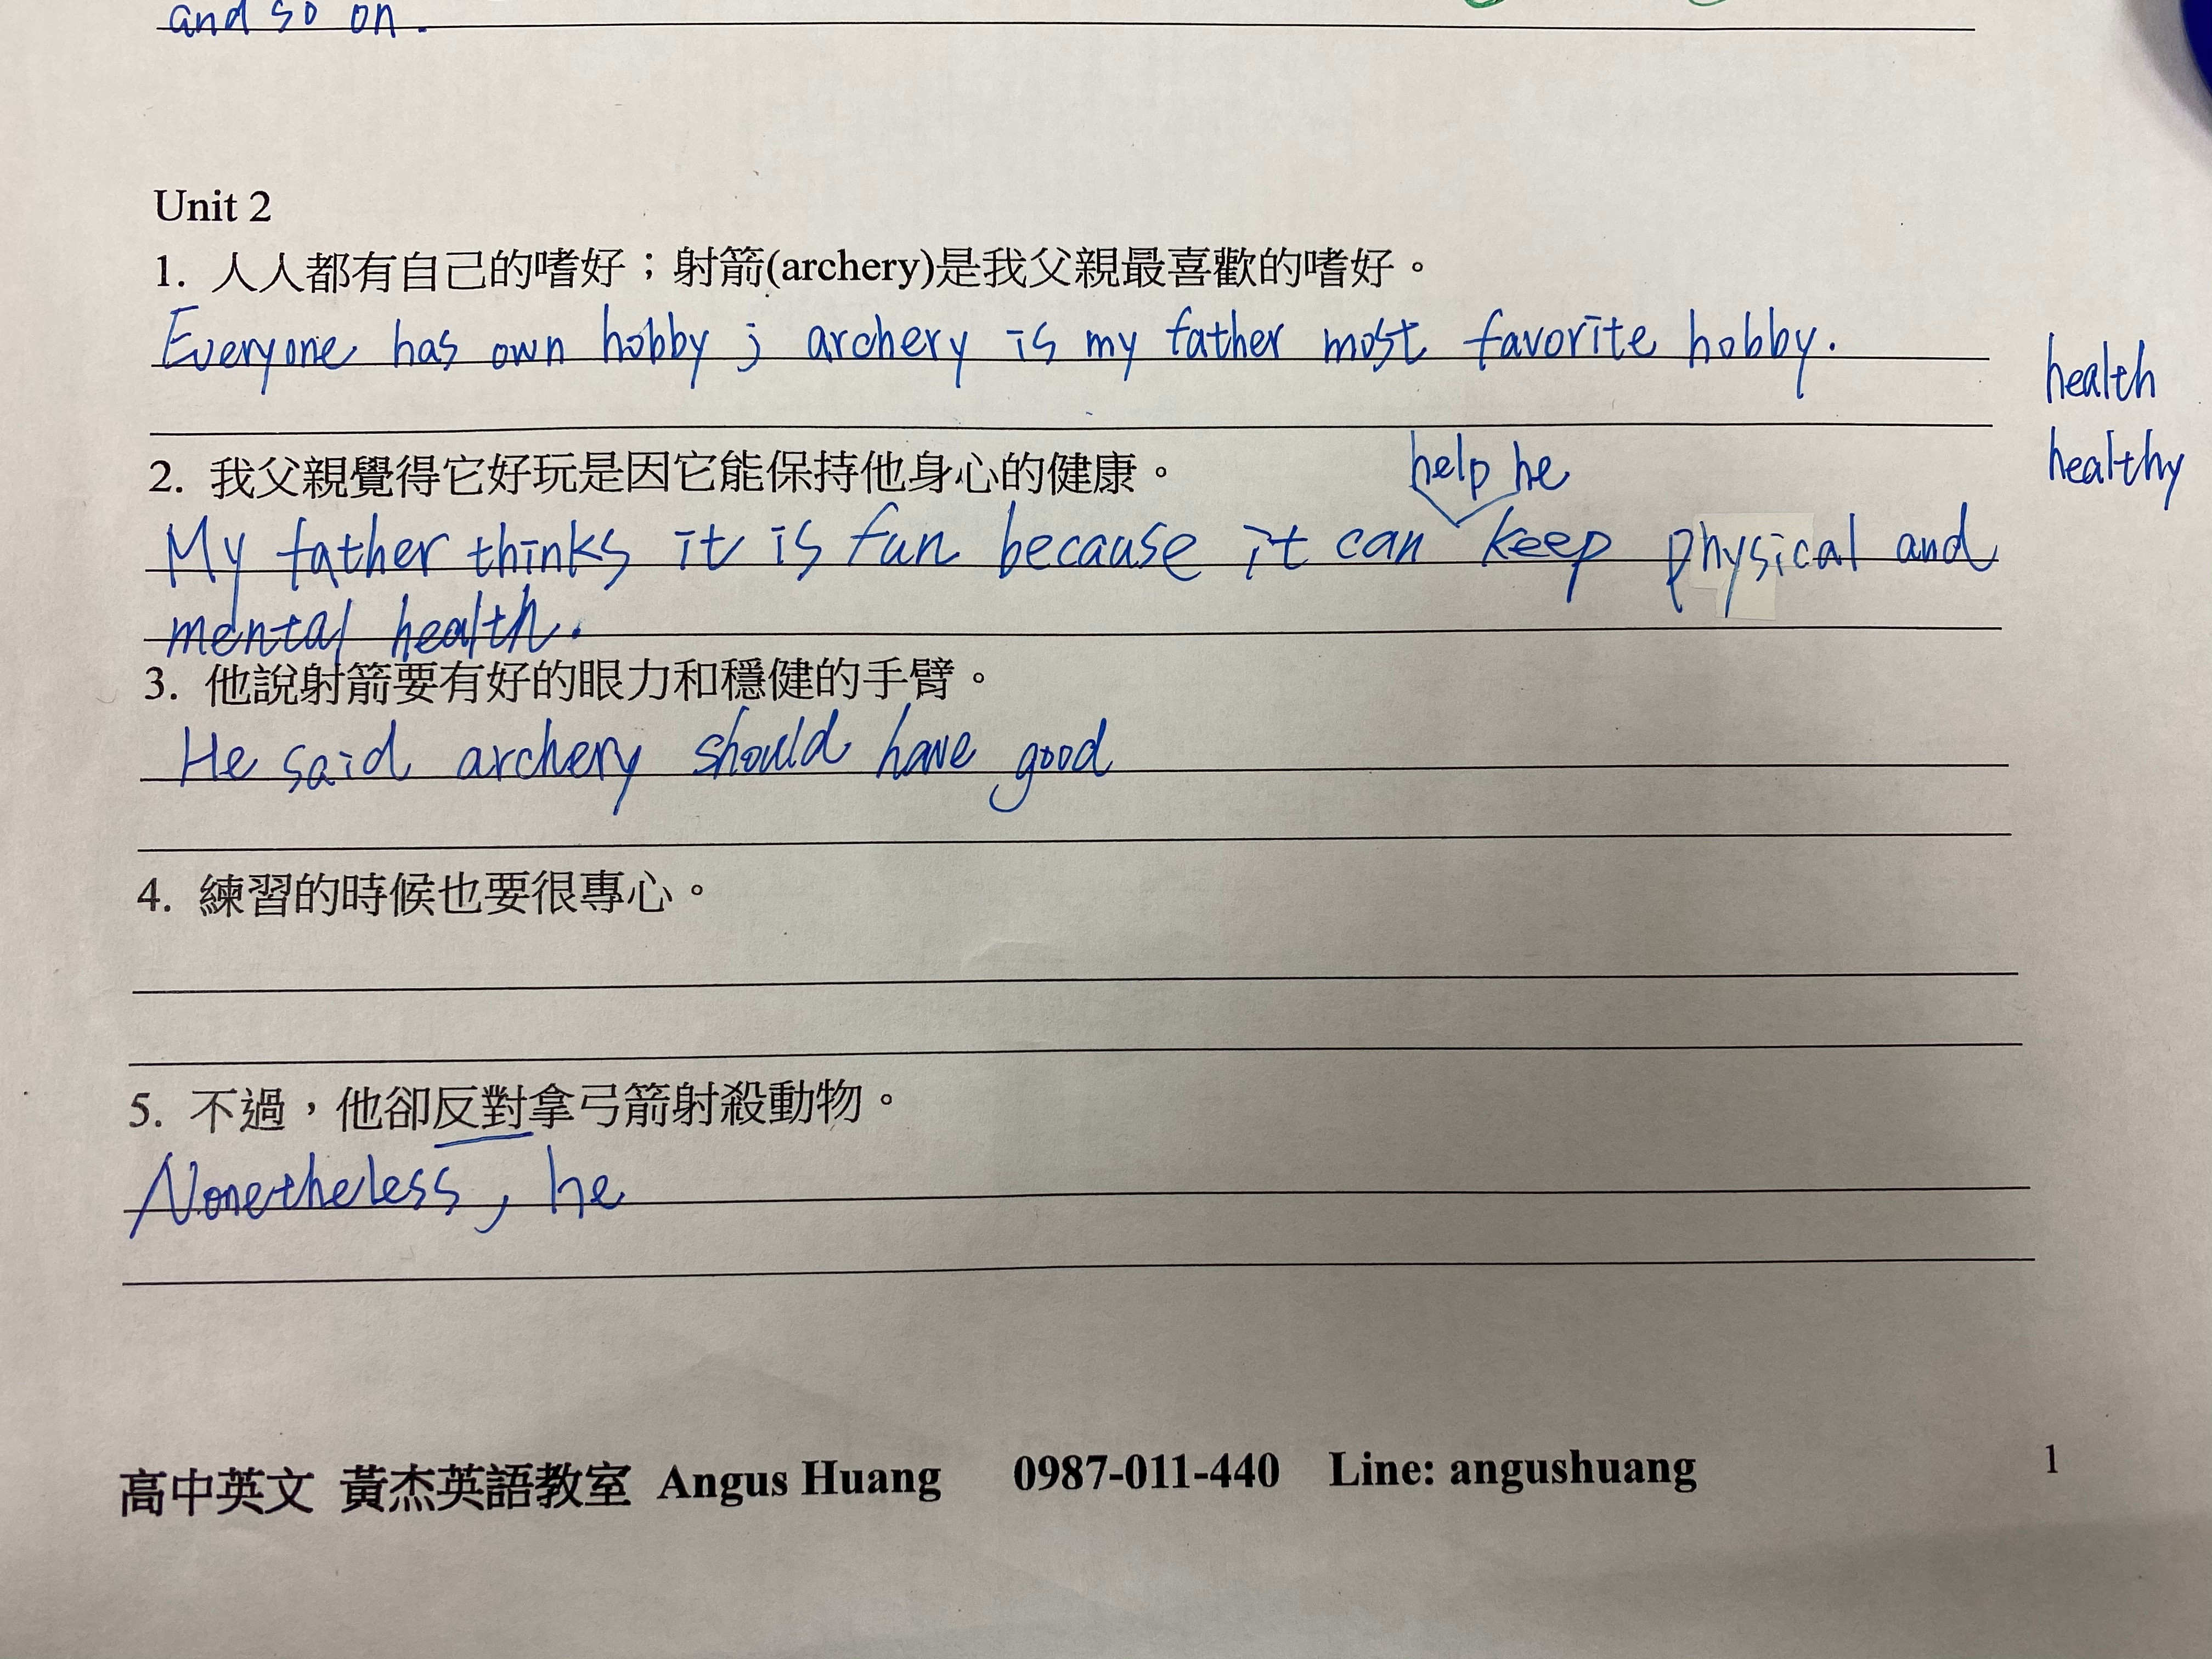 and so on.
Unit 2
1. 人人都有自己的嗜好；射箭(archery)是我父親最喜歡的嗜好。
Everyone has own hobby ; archery is my father most favorite hobby.
health
healthy
2. 我父親覺得它好玩是因它能保持他身心的健康。
help he
My father thinks it is fun because it can keep physical and
mental health.
3. 他說射箭要有好的眼力和穩健的手臂。
He said archery should have good
4. 練習的時候也要很專心。
5. 不過，他卻反對拿弓箭射殺動物。
Nonetheless, he
高中英文 黃杰英語教室 Angus Huang 0987-011-440 Line: angushuang 1